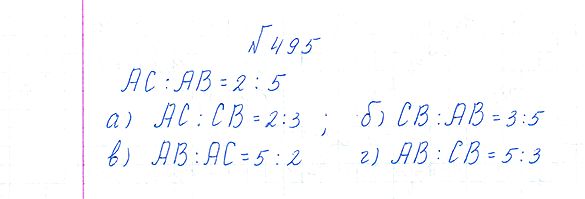 № 495
AC : AB = 2 : 5
а) AC : CB = 2:3 ; б) CB : AB = 3:5
в) AB : AC = 5 : 2 г) AB : CB = 5 : 3